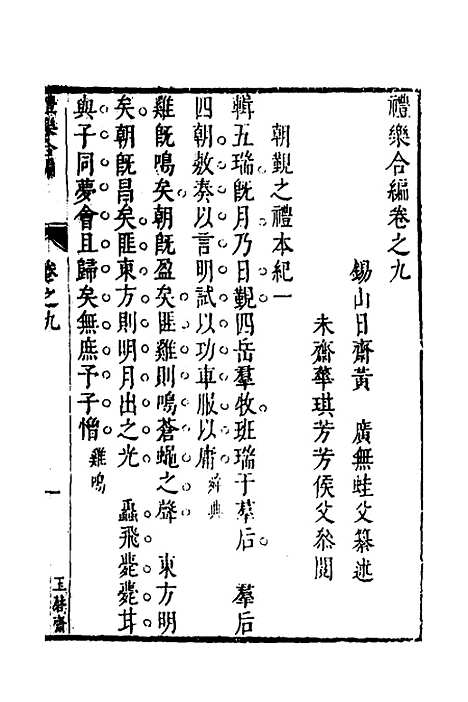 禮樂合編卷之九
錫山日齋黃　廣無蛙父纂述
未齋華琪芳芳侯父叅閱
朝覲之禮本紀一
輯五瑞旣月乃日覲四岳羣牧班瑞于羣后　羣后
四朝敷奏以言明試以功車服以庸舜典
雞旣鳴矣朝旣盈矣匪雞則鳴蒼蠅之聲　東方明
矣朝旣昌矣匪東方則明月出之光　蟲飛薨薨甘
與子同夢會且歸矣無庶予子憎雞鳴
禮樂合編
卷之九
一
玉磬齋